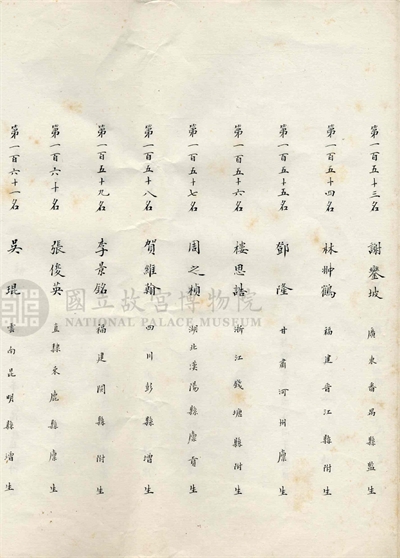 第一百五十三名 謝鑾坡 廣東番禺縣監生
第一百五十四名 林翀鶴 福建晉江縣附生
第一百五十五名 鄧隆 甘肅河州廩生
第一百五十六名 樓思誥 浙江錢塘縣附生
第一百五十七名 周之楨 湖北漢陽縣廩貢生
第一百五十八名 賀維翰 四川彭縣增生
第一百五十九名 李景銘 福建閩縣附生
第一百六十名 張俊英 直隸束鹿縣廩生
第一百六十一名 吳琨 雲南昆明縣增生
國立故宮博物院
NATIONAL PALACE MUSEUM